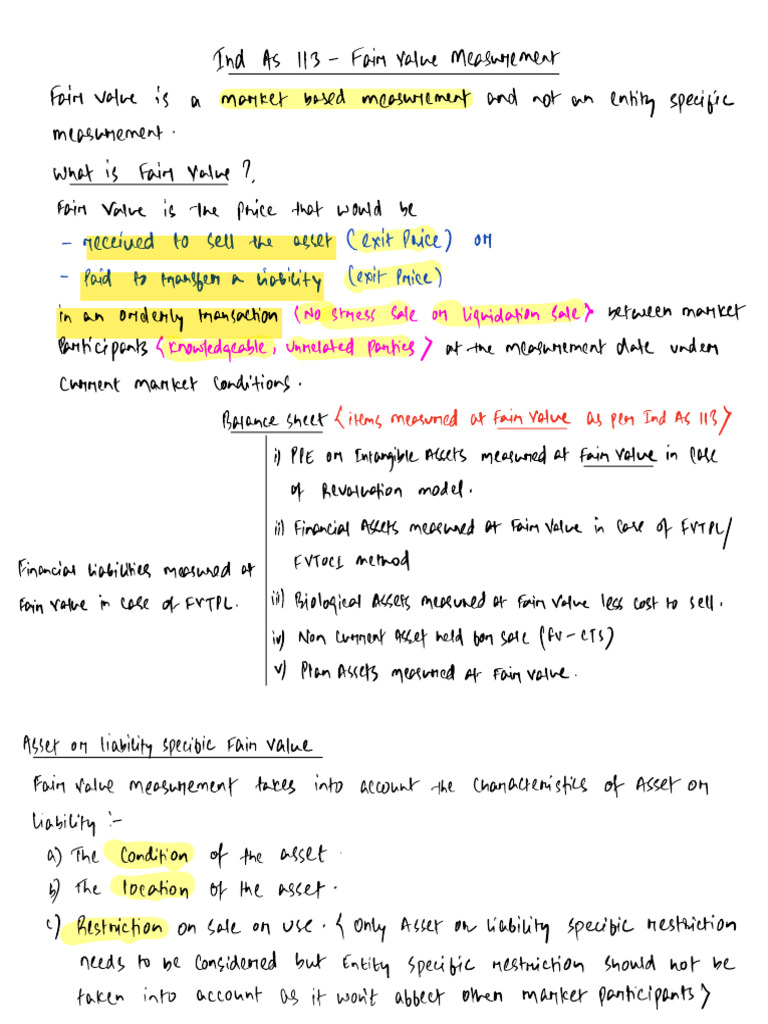 Ind As 113 - Fair value Measurement
Fair value is a market based measurement and not an entity specific
measurement.
What is Fair value?
Fair value is the price that would be
- received to sell the asset (exit price) or
- Paid to transfer a liability (exit price)
in an orderly transaction (No stress sale or liquidation sale) between market
Participants (knowledgeable, unrelated parties) at the measurement date under
current market conditions.
Balance sheet (items measured at Fair value as per Ind As 113)
i) PPE or Intangible Assets measured at Fair value in case
of Revaluation model.
ii) Financial Assets measured at Fair value in case of FVTPL/
FVTOCI method
Financial liabilities measured at
Fair value in case of FVTPL.
iii) Biological Assets measured at Fair value less cost to sell.
iv) Non Current Asset held for sale (FV-CTS)
v) Plan Assets measured at Fair value.
Asset or liability specific Fair value
Fair value measurement takes into account the characteristics of Asset or
liability :-
a) The Condition of the asset.
b) The location of the asset.
c) Restriction on sale or use. (Only Asset or liability specific restriction
needs to be considered but Entity specific restriction should not be
taken into account as it won't affect other market participants)